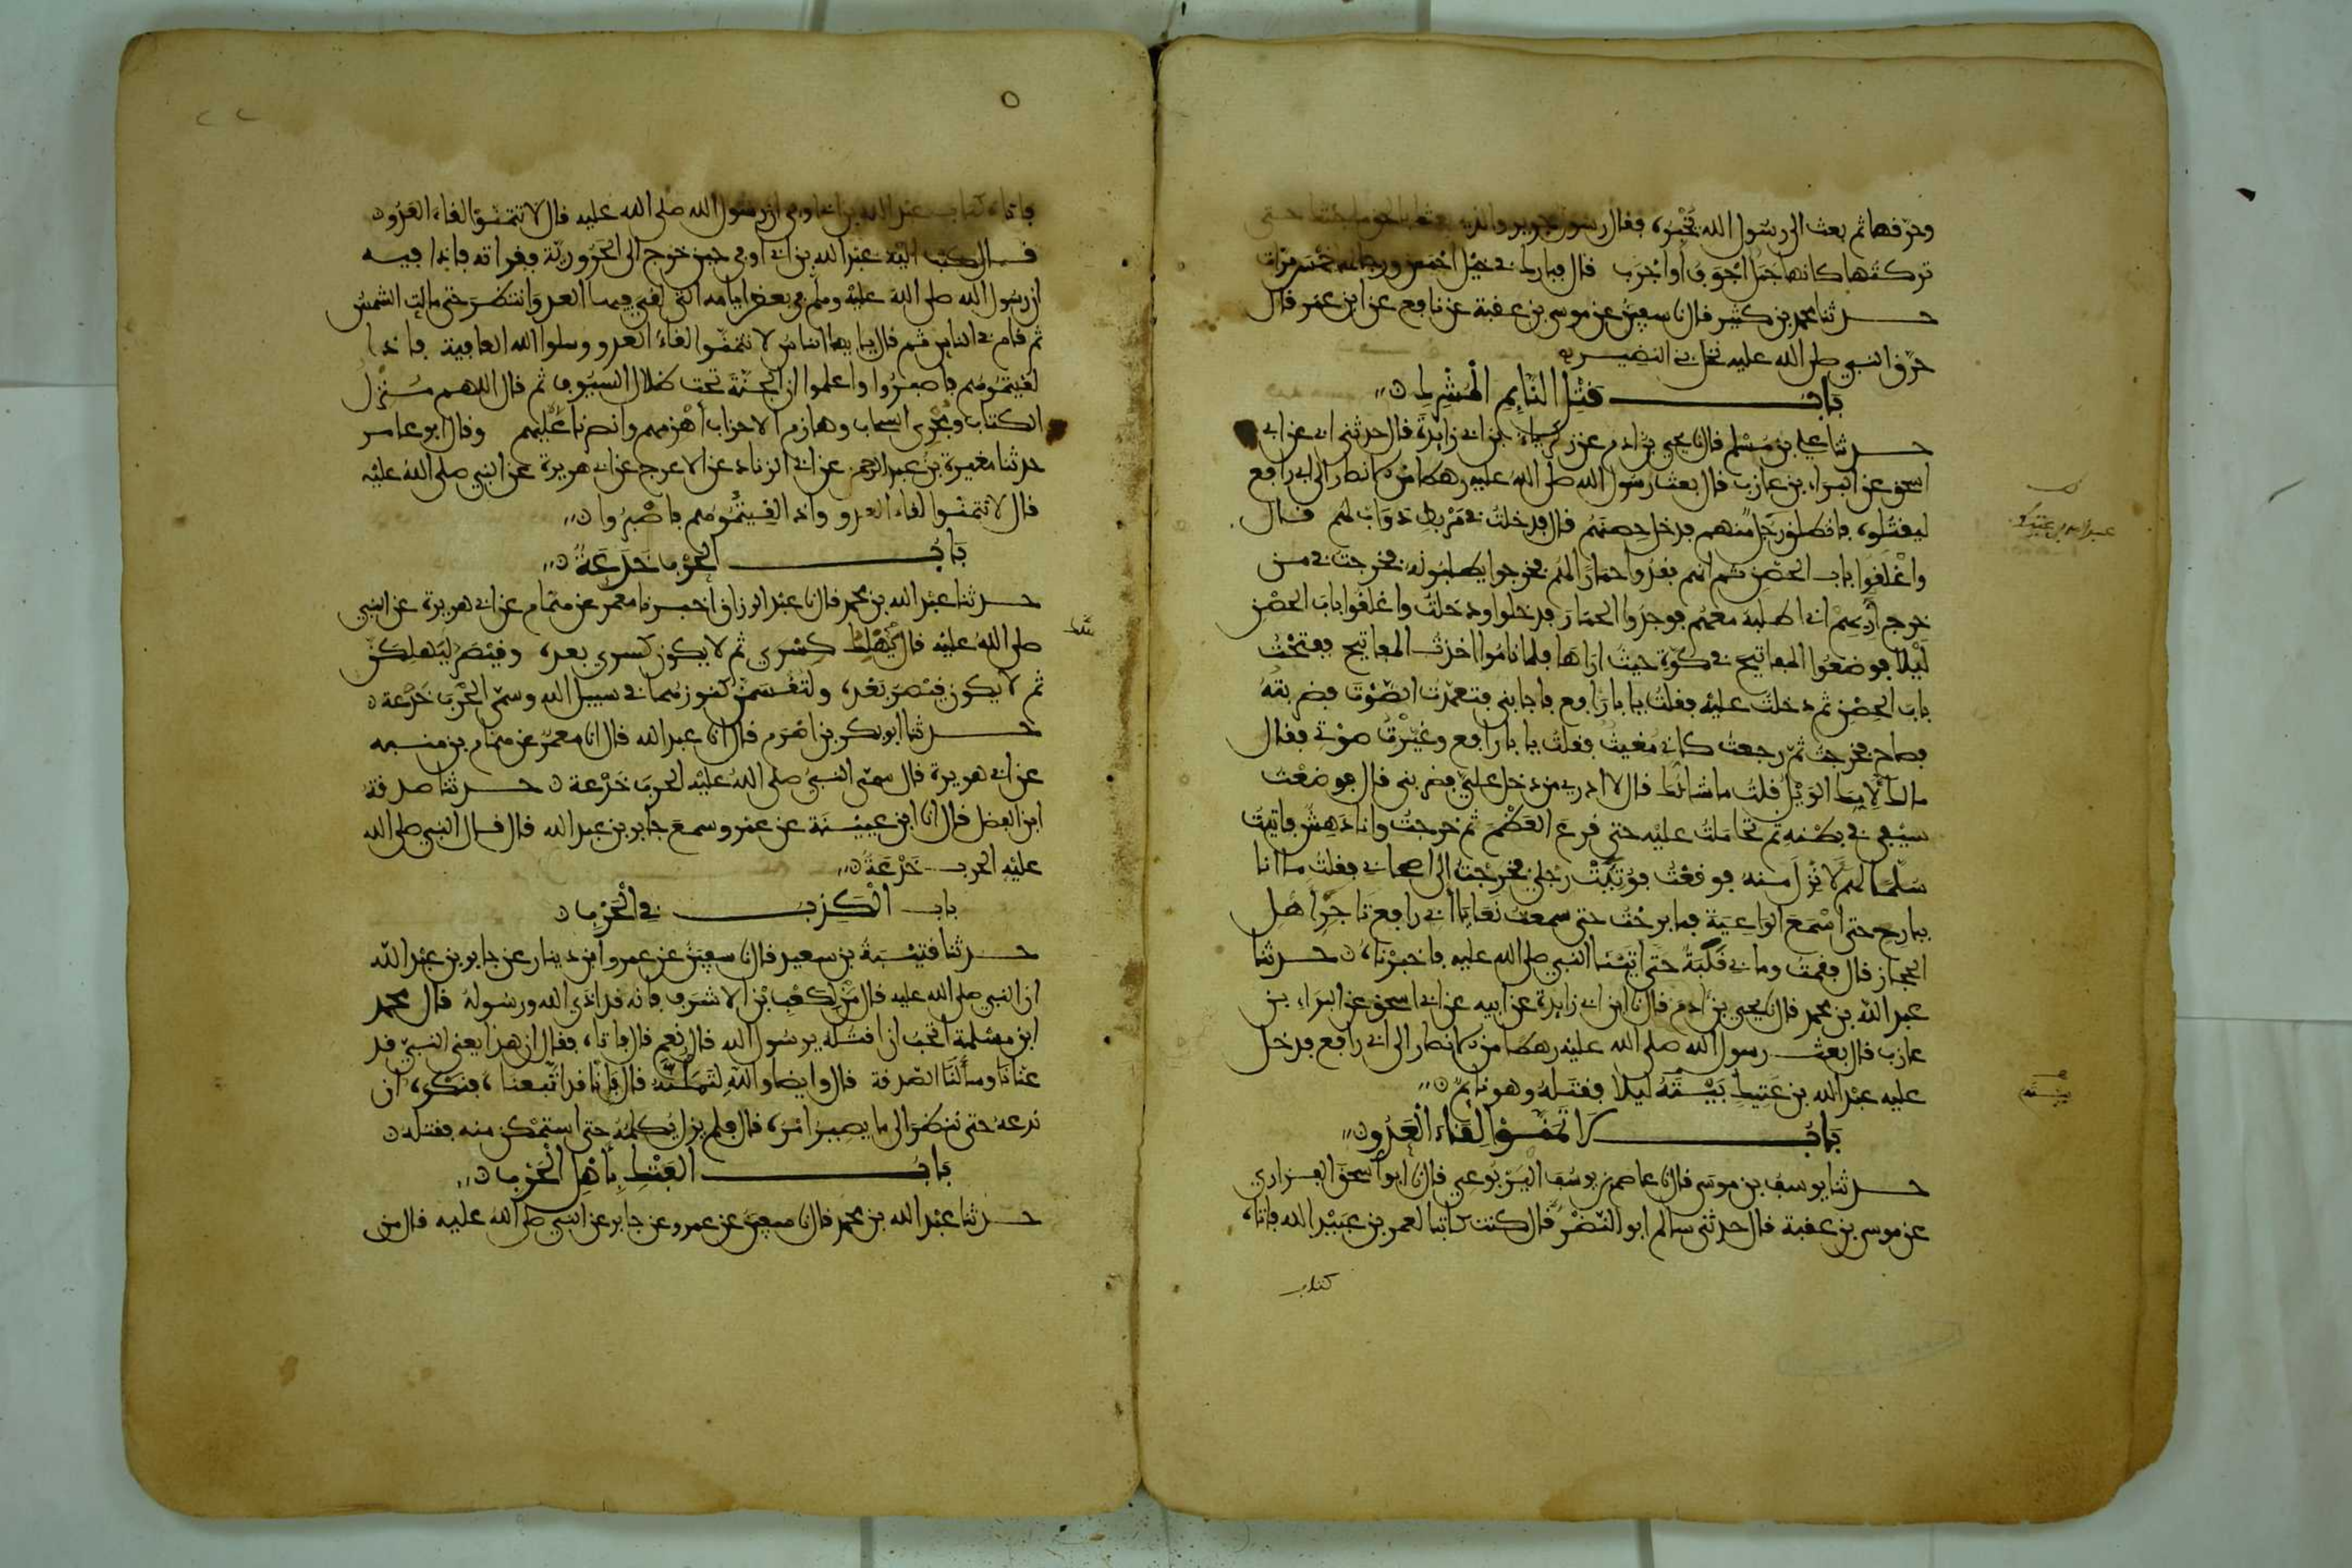 وحرّقها ثم بعث الى رسول الله يخبره فقال رسول جرير والذي بعثك بالحق ما جئتك حتى
تركتها كانها جمل اجوف او اجرب قال فبارك في خيل احمس ورجالها خمس مرات
حدثنا محمد بن كثير قال نا سفين عن موسى بن عقبة عن نافع عن ابن عمر قال
حرّق النبي صلى الله عليه نخل بني النضير
باب قتل النايم المشرك
حدثنا علي بن مسلم قال نا يحيى بن ادم عن زكرياء بن ابي زايدة قال حدثني ابي عن ابي
اسحق عن البراء بن عازب قال بعث رسول الله صلى الله عليه رهطا من الانصار الى ابي رافع
ليقتلوه فانطلق رجل منهم فدخل حصنهم قال فدخلت في مربط دواب لهم قال
واغلقوا باب الحصن ثم انهم فقدوا حمارا لهم فخرجوا يطلبونه فخرجت في من
خرج اريهم اني اطلبه معهم فوجدوا الحمار فدخلوا ودخلت واغلقوا باب الحصن
ليلا فوضعوا المفاتيح في كوّة حيث اراها فلما ناموا اخذت المفاتيح ففتحت
باب الحصن ثم دخلت عليه فقلت يا با رافع فاجابني فتعمدت الصوت فضربته
فصاح فخرجت ثم رجعت كاني مغيث فقلت يا با رافع وغيرت صوتي فقال
مالك لامك الويل قلت ما شانك قال لا ادري من دخل علي فضربني قال فوضعت
سيفي في بطنه ثم تحاملت عليه حتى قرع العظم ثم خرجت وانا دهش فاتيت
سلما لهم لانزل منه فوقعت فوثئت رجلي فخرجت الى اصحابي فقلت ما انا
ببارح حتى اسمع الواعية فما برحت حتى سمعت نعايا ابي رافع تاجر اهل
الحجاز قال فقمت وما بي قلبة حتى اتينا النبي صلى الله عليه فاخبرناه حدثنا
عبد الله بن محمد قال نا يحيى بن ادم قال نا ابن ابي زايدة عن ابيه عن ابي اسحق عن البراء بن
عازب قال بعث رسول الله صلى الله عليه رهطا من الانصار الى ابي رافع فدخل
عليه عبد الله بن عتيك بيته ليلا فقتله وهو نايم
باب لا تمنوا لقاء العدو
حدثنا يوسف بن موسى قال نا عاصم بن يوسف اليربوعي قال نا ابو اسحق الفزاري
عن موسى بن عقبة قال حدثني سالم ابو النضر قال كنت كاتبا لعمر بن عبيد الله فاتاه
كتاب
فاتاه كتاب عبد الله بن ابي اوفى ان رسول الله صلى الله عليه قال لا تتمنوا لقاء العدو
قال كتب اليه عبد الله بن ابي اوفى حين خرج الى الحرورية فقراته فاذا فيه
ان رسول الله صلى الله عليه وسلم في بعض ايامه التي لقي فيها العدو انتظر حتى مالت الشمس
ثم قام في الناس ثم قال يا ايها الناس لا تتمنوا لقاء العدو وسلوا الله العافية فاذا
لقيتموهم فاصبروا واعلموا ان الجنة تحت ظلال السيوف ثم قال اللهم منزل
الكتاب ومجري السحاب وهازم الاحزاب اهزمهم وانصرنا عليهم وقال ابو عامر
حدثنا مغيرة بن عبد الرحمن عن ابي الزناد عن الاعرج عن ابي هريرة عن النبي صلى الله عليه
قال لا تتمنوا لقاء العدو واذا لقيتموهم فاصبروا
باب الحرب خدعة
حدثنا عبد الله بن محمد قال نا عبد الرزاق اخبرنا معمر عن همام عن ابي هريرة عن النبي
صلى الله عليه قال يهلك كسرى ثم لا يكون كسرى بعده وقيصر ليهلكن
ثم لا يكون قيصر بعده ولتقسمن كنوزهما في سبيل الله وسمى الحرب خدعة
حدثنا ابو بكر بن اصرم قال انا عبد الله قال انا معمر عن همام بن منبه
عن ابي هريرة قال سمى النبي صلى الله عليه الحرب خدعة حدثنا صدقة
ابن الفضل قال انا ابن عيينة عن عمرو سمع جابر بن عبد الله قال قال النبي صلى الله
عليه الحرب خدعة
باب الكذب في الحرب
حدثنا قتيبة بن سعيد قال نا سفين عن عمرو ابن دينار عن جابر بن عبد الله
ان النبي صلى الله عليه قال من لكعب بن الاشرف فانه قد اذى الله ورسوله قال محمد
ابن مسلمة اتحب ان اقتله يرسول الله قال نعم قال فاتاه فقال ان هذا يعني النبي قد
عنانا وسالنا الصدقة قال وايضا والله لتملنه قال فانا قد اتبعناه فنكره ان
ندعه حتى ننظر الى ما يصير امره قال فلم يزل يكلمه حتى استمكن منه فقتله
باب الفتك باهل الحرب
حدثنا عبد الله بن محمد قال نا سفين عن عمرو عن جابر عن النبي صلى الله عليه قال من